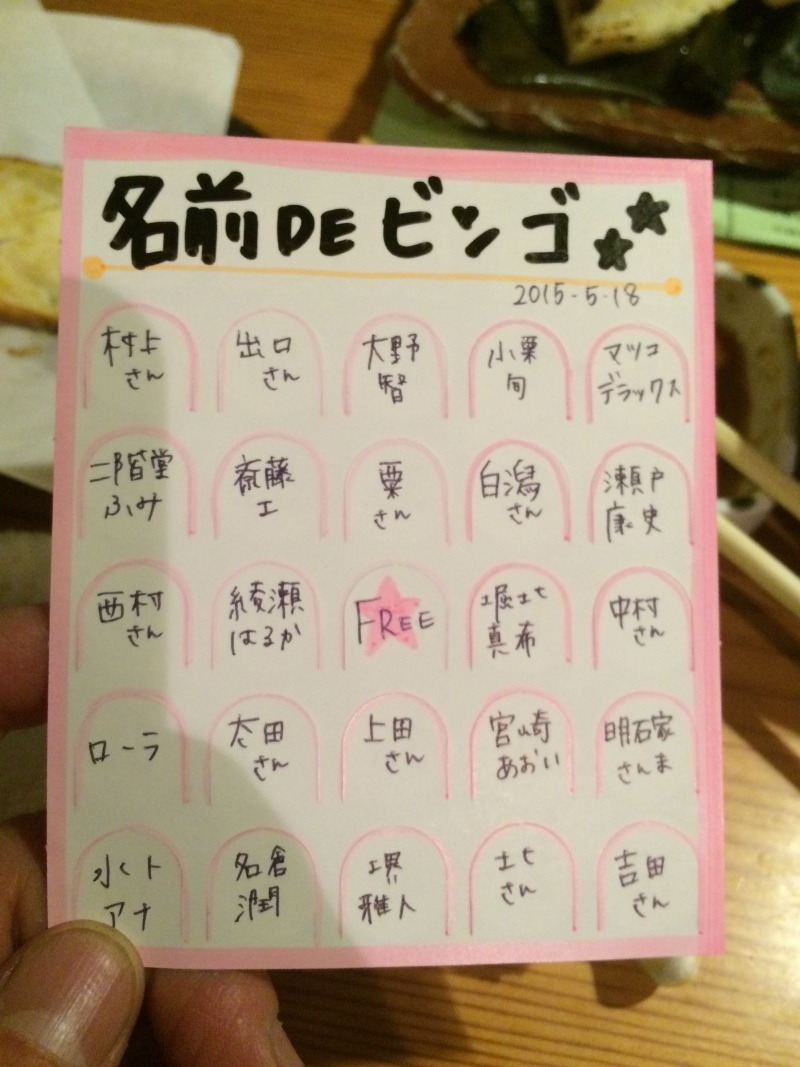 名前DEビンゴ★★
2015-5-18
村上
さん
出口
さん
大野
智
小栗
旬
マツコ
デラックス
二階堂
ふみ
斎藤
工
粟
さん
白潟
さん
瀬戸
康史
西村
さん
綾瀬
はるか
FREE
堀北
真希
中村
さん
ローラ
太田
さん
上田
さん
宮崎
あおい
明石家
さんま
水卜
アナ
名倉
潤
堺
雅人
北
さん
吉田
さん